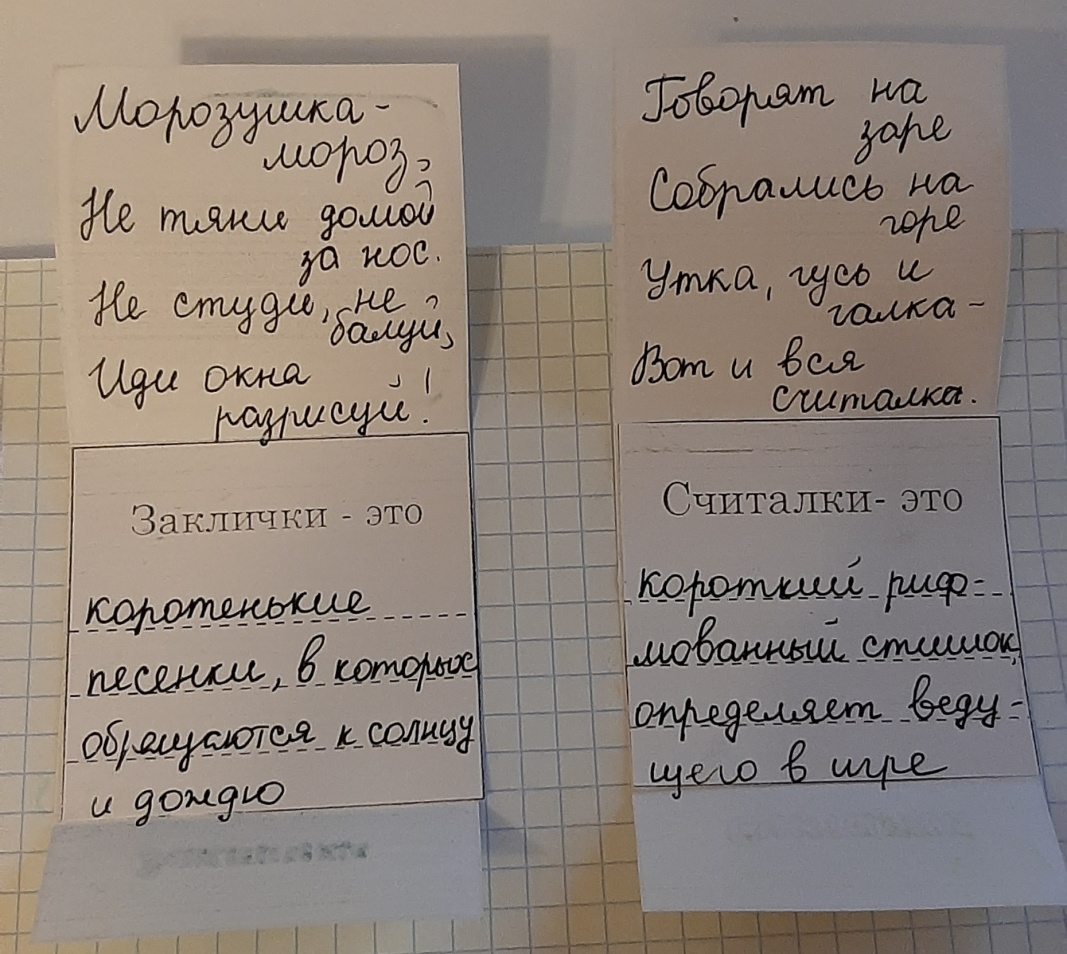 Морозушка-
мороз,
Не тяни домой
за нос.
Не студи, не
балуй,
Иди окна
разрисуй!
Заклички - это
коротенькие
песенки, в которых
обращаются к солнцу
и дождю
Говорят на
заре
Собрались на
горе
Утка, гусь и
галка-
Вот и вся
считалка.
Считалки- это
короткий риф-
мованный стишок,
определяет веду-
щего в игре